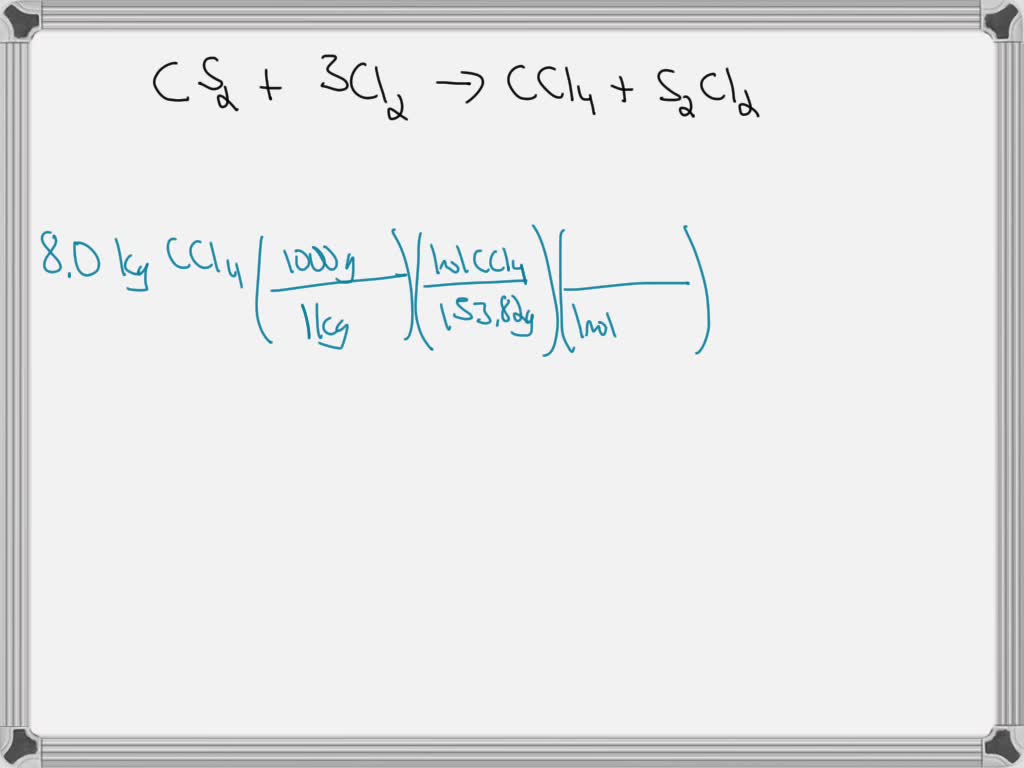 CS₂ + 3Cl₂ → CCl₄ + S₂Cl₂
8.0 kg CCl₄ (1000g / 1kg) (1mol CCl₄ / 153.82g) ( / 1mol )